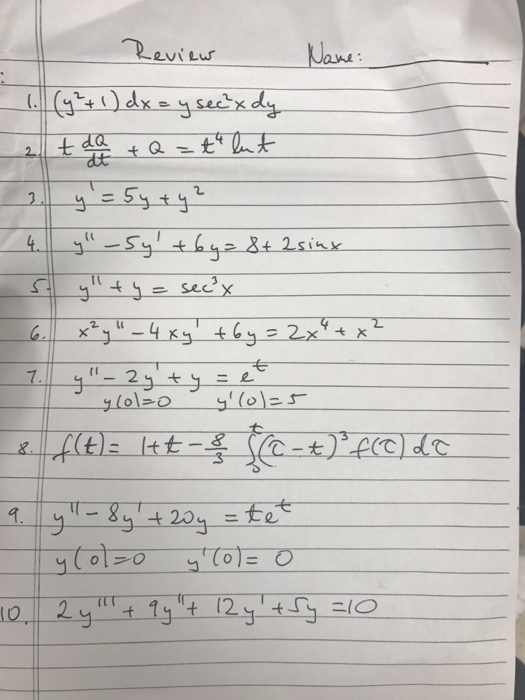 Review Name:
1. (y²+1) dx = y sec²x dy
2. t dQ/dt + Q = t⁴ ln t
3. y' = 5y + y²
4. y'' - 5y' + 6y = 8 + 2 sinx
5. y'' + y = sec³x
6. x²y'' - 4xy' + 6y = 2x⁴ + x²
7. y'' - 2y' + y = eᵗ
y(0)=0 y'(0)=5
8. f(t) = 1+t - 8/3 ∫₀ᵗ (τ-t)³ f(τ) dτ
9. y'' - 8y' + 20y = teᵗ
y(0)=0 y'(0)=0
10. 2y''' + 9y'' + 12y' + 5y = 10